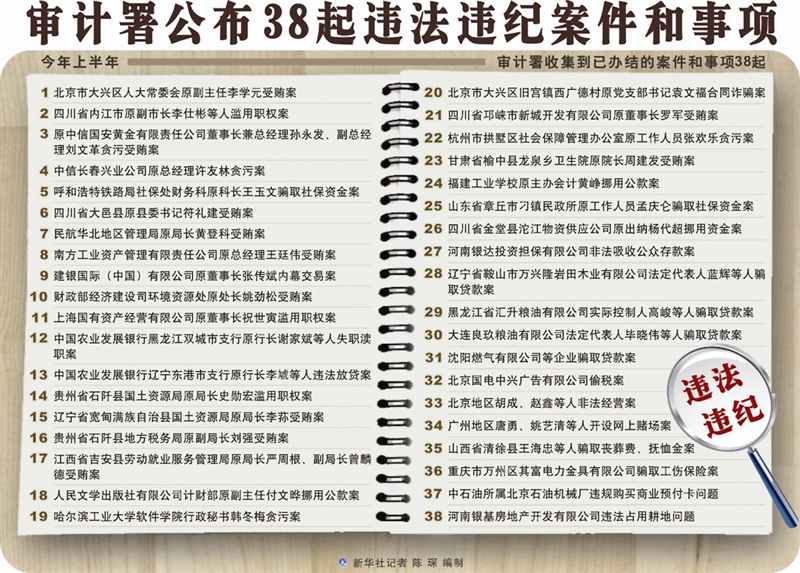 审计署公布38起违法违纪案件和事项
今年上半年
审计署收集到已办结的案件和事项38起
1 北京市大兴区人大常委会原副主任李学元受贿案
2 四川省内江市原副市长李仕彬等人滥用职权案
3 原中信国安黄金有限责任公司董事长兼总经理孙永发、副总经
理刘文革贪污受贿案
4 中信长春兴业公司原总经理许友林贪污案
5 呼和浩特铁路局社保处财务科原科长王玉文骗取社保资金案
6 四川省大邑县原县委书记符礼建受贿案
7 民航华北地区管理局原局长黄登科受贿案
8 南方工业资产管理有限责任公司原总经理王廷伟受贿案
9 建银国际（中国）有限公司原董事长张传斌内幕交易案
10 财政部经济建设司环境资源处原处长姚劲松受贿案
11 上海国有资产经营有限公司原董事长祝世寅滥用职权案
12 中国农业发展银行黑龙江双城市支行原行长谢家斌等人失职渎
职案
13 中国农业发展银行辽宁东港市支行原行长李虓等人违法放贷案
14 贵州省石阡县国土资源局原局长史勋宏滥用职权案
15 辽宁省宽甸满族自治县国土资源局原局长李荪受贿案
16 贵州省石阡县地方税务局原副局长刘强受贿案
17 江西省吉安县劳动就业服务管理局原局长严周根、副局长曾麟
德受贿案
18 人民文学出版社有限公司计财部原副主任付文晔挪用公款案
19 哈尔滨工业大学软件学院行政秘书韩冬梅贪污案
20 北京市大兴区旧宫镇西广德村原党支部书记袁文福合同诈骗案
21 四川省邛崃市新城开发有限公司原董事长罗军受贿案
22 杭州市拱墅区社会保障管理办公室原工作人员张欢乐贪污案
23 甘肃省榆中县龙泉乡卫生院原院长周建发受贿案
24 福建工业学校原主办会计黄峥挪用公款案
25 山东省章丘市刁镇民政所原工作人员孟庆仑骗取社保资金案
26 四川省金堂县沱江物资供应公司原出纳杨代超挪用资金案
27 河南银达投资担保有限公司非法吸收公众存款案
28 辽宁省鞍山市万兴隆岩田木业有限公司法定代表人蓝辉等人骗
取贷款案
29 黑龙江省汇升粮油有限公司实际控制人高峻等人骗取贷款案
30 大连良玖粮油有限公司法定代表人毕晓伟等人骗取贷款案
31 沈阳燃气有限公司等企业骗取贷款案
32 北京国电中兴广告有限公司偷税案
33 北京地区胡成、赵鑫等人非法经营案
34 广州地区唐勇、姚艺清等人开设网上赌场案
35 山西省清徐县王海忠等人骗取丧葬费、抚恤金案
36 重庆市万州区其富电力金具有限公司骗取工伤保险案
37 中石油所属北京石油机械厂违规购买商业预付卡问题
38 河南银基房地产开发有限公司违法占用耕地问题
违法
违纪
新华社记者 陈 琛 编制